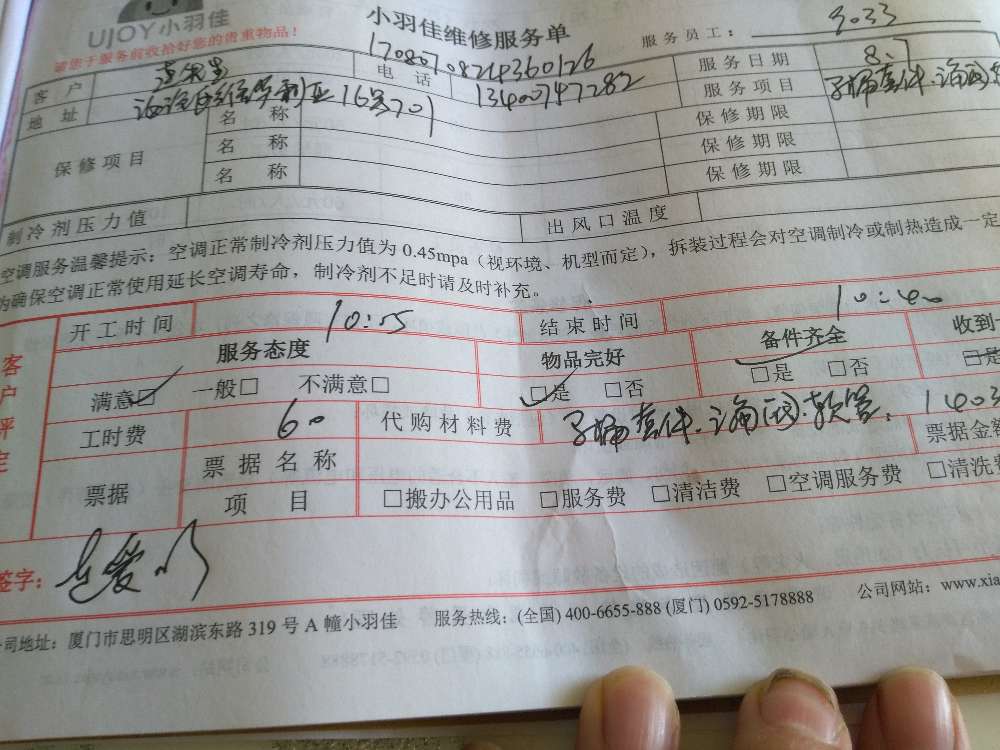 UJOY小羽佳
小羽佳维修服务单
请您于服务前收拾好您的贵重物品!
服务员工: 3033
客户
电话 13400747282
服务日期 8.7
地址 16号701
服务项目
保修项目
名称 保修期限
名称 保修期限
名称 保修期限
制冷剂压力值 出风口温度
空调服务温馨提示:空调正常制冷剂压力值为 0.45mpa(视环境、机型而定),拆装过程会对空调制冷或制热造成一定
确保空调正常使用延长空调寿命,制冷剂不足时请及时补充。
客户评定
开工时间 10:05 结束时间 10:40
服务态度 物品完好 备件齐全 收到
满意□ 一般□ 不满意□ □是 □否 □是 □否 □是
工时费 60 代购材料费 软管. 1403
票据 票据名称 票据金额
项目 □搬办公用品 □服务费 □清洁费 □空调服务费 □清洗费
签字:
司地址:厦门市思明区湖滨东路 319 号 A 幢小羽佳 服务热线:(全国) 400-6655-888 (厦门) 0592-5178888 公司网站:www.xia